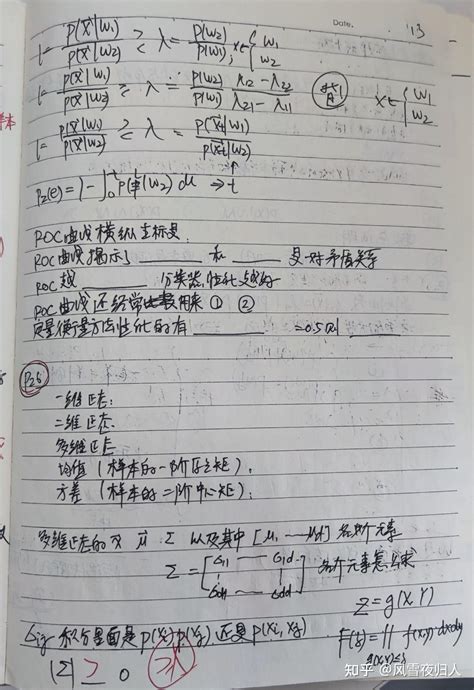 Date. '13
l = p(x|w1)/p(x|w2) ≷ λ = p(w2)/p(w1), x∈{w1 w2
l = p(x|w1)/p(x|w2) ≷ λ = p(w2)/p(w1) λ12-λ22/λ21-λ11 x∈{w1 w2
l = p(x|w1)/p(x|w2) ≷ λ = p(x=t|w1)/p(x=t|w2)
P2(e) = 1-∫0 p( |w2) du ⇒ t
ROC曲线横纵坐标是:
ROC曲线揭示了 ____ 和 ____ 是一对矛盾关系
ROC越 ____ 分类器性能越好
ROC曲线还经常被用来 ① ②
定量衡量方法性能的有 ____ =0.5时 ____
P26
一维正态:
二维正态
多维正态
均值(样本的一阶原点矩).
方差(样本的二阶中心矩):
多维正态的 X μ Σ 以及其中[μ1 ---- μd]各阶元素
Σ = [σ11 ---- σ1d σd1 ---- σdd] 各个元素怎么求
Z=g(X,Y)
σij 积分里面是p(xi)p(xj),还是p(xi,xj)
F(z)=∬ f(x,y) dxdy
g(x,y)≤z
|Σ| ≥ 0
知乎 @风雪夜归人